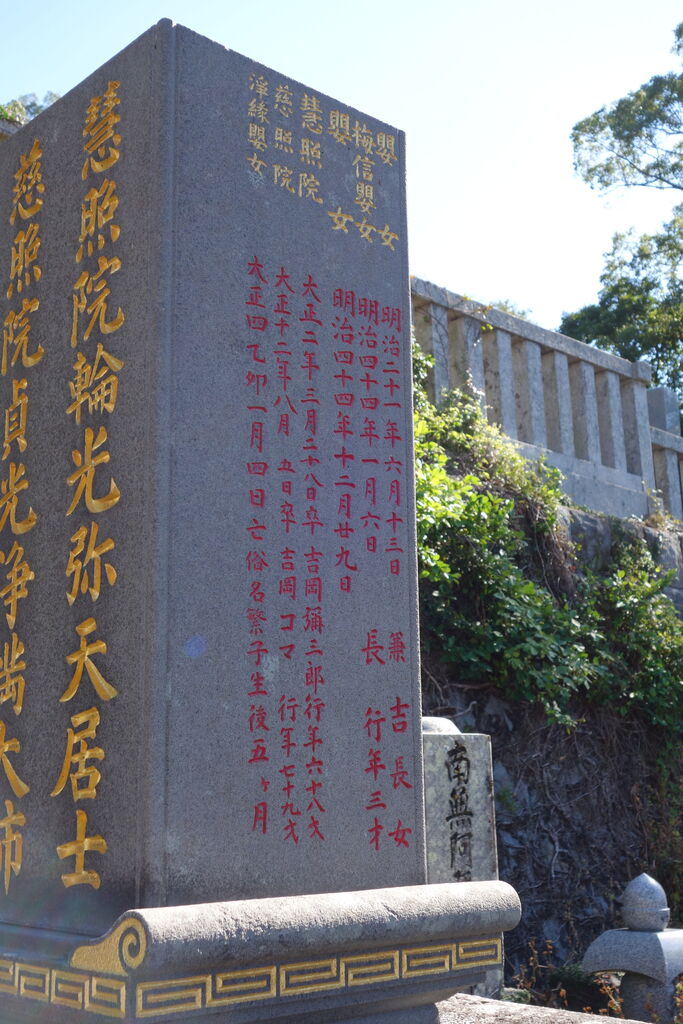 嬰女 明治二十一年六月十三日 兼吉長女
梅信嬰女 明治四十四年一月六日 長 行年三才
嬰女 明治四十四年十二月廿九日
慧照院 大正二年三月二十八日卒 吉岡彌三郎行年六十八才
慈照院 大正十二年八月五日卒 吉岡コマ 行年七十九才
淨緣嬰女 大正四乙卯一月四日亡俗名繁子生後五ヶ月
慧照院輪光弥天居士
慈照院貞光浄大姉
南無阿